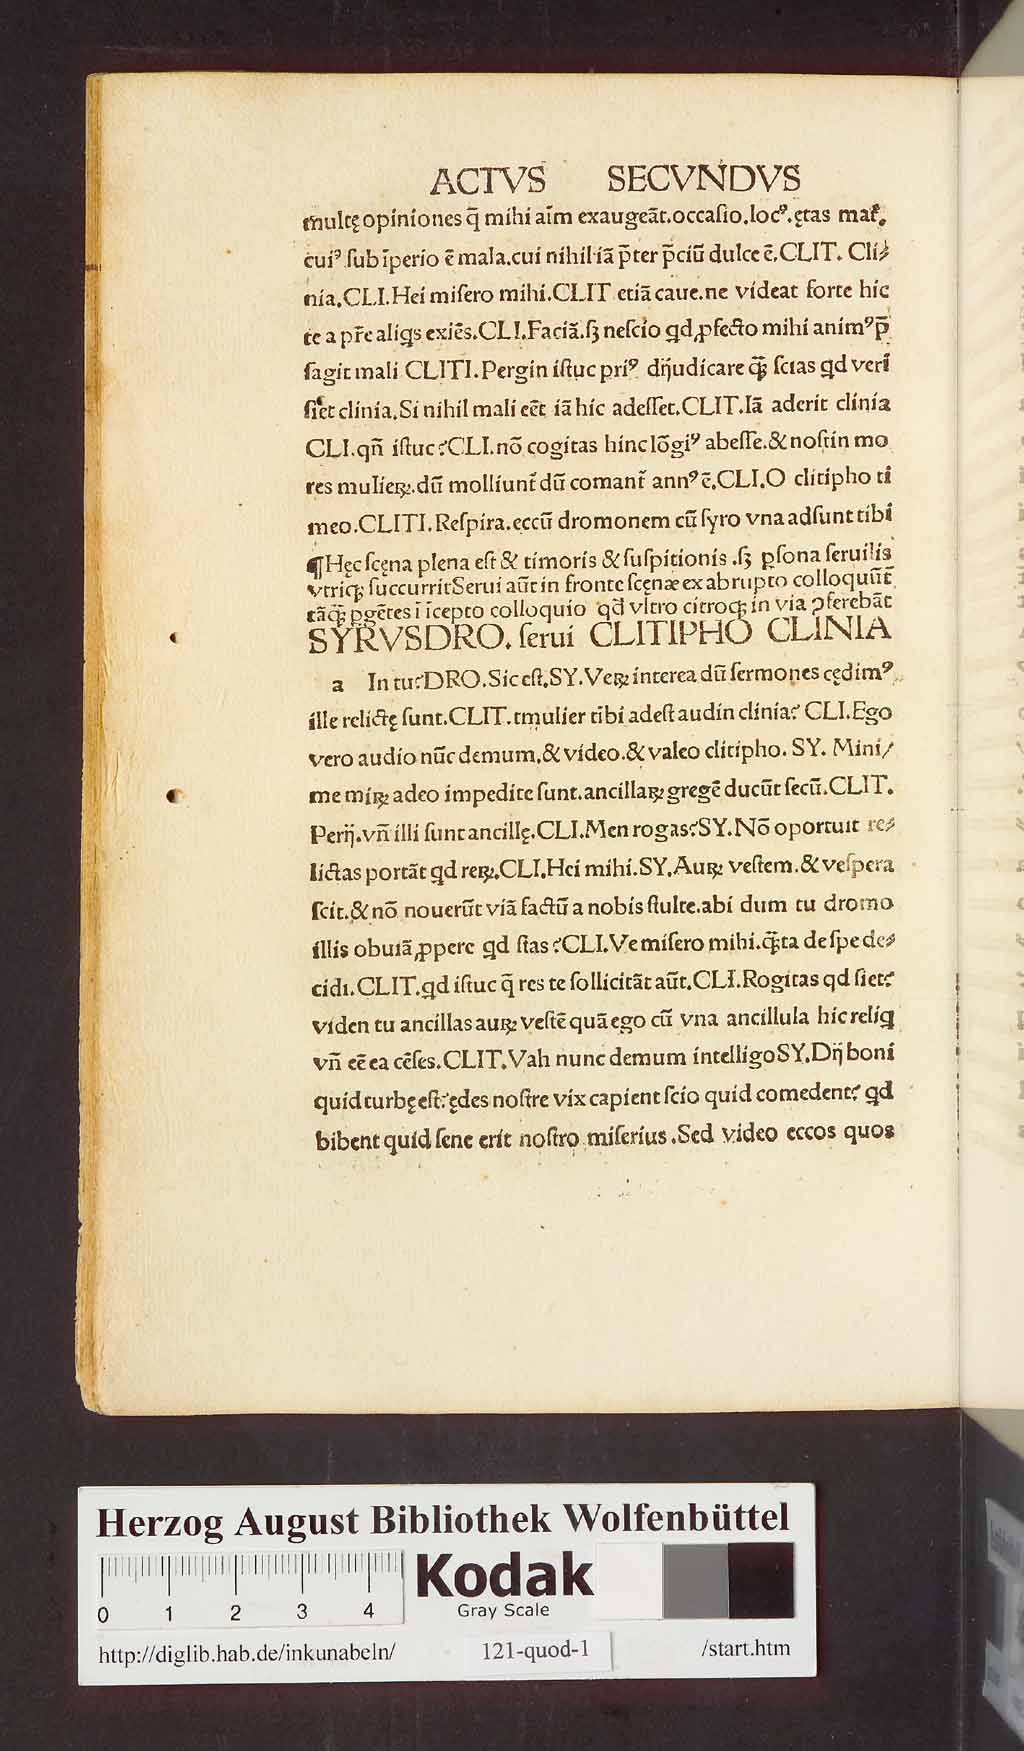 ACTVS SECVNDVS
multę opiniones q̄ mihi aĩm exaugeãt.occaſio.locꝰ.ętas mat̃.
cuiꝰ ſub ĩperio ẽ mala.cui nihil iã p̃ter p̃ciũ dulce ẽ.CLIT. Cli⸗
nia.CLI.Hei miſero mihi.CLIT etiã caue.ne videat forte hic
te a pr̃e aliqs exiẽs.CLI.Faciã.ſꝫ neſcio qd ꝓfecto mihi animꝰ p̃
ſagit mali CLITI.Pergin iſtuc priꝰ dijudicare q̃ꝫ ſcias qd veri
ſiet clinia.Si nihil mali eẽt iã hic adeſſet.CLIT.Iã aderit clinia
CLI.qñ iſtuc?CLI.nõ cogitas hinc lõgiꝰ abeſſe.& noſtin mo
res mulieꝝ.dũ moliunt̃ dũ comant̃ annꝰ ẽ.CLI.O clitipho ti
meo.CLITI.Reſpira.eccũ dromonem cũ ſyro vna adſunt tibi
¶Hęc ſcęna plena eſt & timoris & ſuſpitionis .ſꝫ ꝑſona ſeruilis
vtriqꝫ ſuccurrit Serui aũt in fronte ſcęnæ ex abrupto colloquũt̃
tãq̃ꝫ ꝑgẽtes ĩ ĩcepto colloquio qd vltro citroqꝫ in via ꝯferebãt
SYRVSDRO. ſerui CLITIPHO CLINIA
a In tu?DRO.Sic eſt.SY.Veꝝ interea dũ ſermones cędimꝰ
ille relictę ſunt.CLIT.tmulier tibi adeſt audin clinia? CLI.Ego
vero audio nũc demum.& video.& valeo clitipho. SY. Mini/
me miꝝ adeo impedite ſunt.ancillaꝝ gregẽ ducũt ſecũ.CLIT.
Perij.vñ illi ſunt ancillę.CLI.Men rogas?SY.Nõ oportuit re⸗
lictas portãt qd reꝝ.CLI.Hei mihi.SY.Auꝝ veſtem.& veſpera
ſcit.& nõ nouerũt viã factũ a nobis ſtulte.abi dum tu dromo
illis obuiã ꝓpere qd ſtas?CLI.Ve miſero mihi.q̃ꝫta de ſpe de⸗
cidi.CLIT.qd iſtuc q̄ res te ſollicitãt aũt.CLI.Rogitas qd ſiet?
viden tu ancillas auꝝ veſtẽ quã ego cũ vna ancillula hic reliq
vñ eẽ ea cẽſes.CLIT.Vah nunc demum intelligo SY.Dij boni
quid turbę eſt?ędes noſtre vix capient ſcio quid comedent? qd
bibent quid ſene erit noſtro miſerius .Sed video eccos quos
Herzog August Bibliothek Wolfenbüttel
Kodak
Gray Scale
0 1 2 3 4
http://diglib.hab.de/inkunabeln/ 121-quod-1 /start.htm